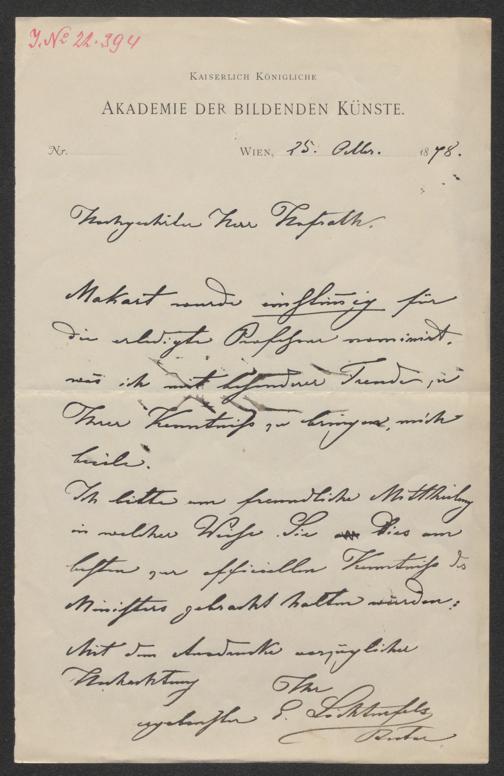 I. No 22.394
KAISERLICH KÖNIGLICHE
AKADEMIE DER BILDENDEN KÜNSTE.
Nr. WIEN, 25. Octbr. 1878.
Hochgeehrter Herr Hofrath.
Makart wurde einstimmig für
die erledigte Professur nominirt,
was ich mit besonderer Freude, zu
Ihrer Kenntniß zu bringen, mich
beeile.
Ich bitte um freundliche Mittheilung
in welcher Weise Sie Dies am
besten zur officiellen Kenntniß des
Ministers gebracht halten würden.
Mit dem Ausdrucke vorzüglicher
Hochachtung
Ihr
ergebenster E. Lichtenfels